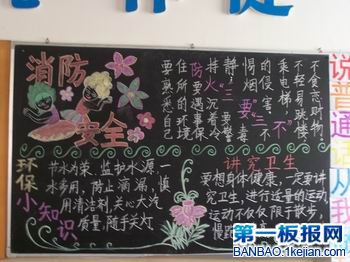 消防
安全
防火“三要”“三不”
要熟悉自己
住所的环境
要遇事保
持沉着冷
静
要警
惕烟毒
的侵害
不
乘电梯
不轻易跳楼
不贪恋财物
环保
小知识
节水为荣、监护水源一
水多用,防止滴漏,慎
用清洁剂,关心大汽
质量,随手关灯
讲究卫生
要想身体健康,一定要讲
究卫生,进行适量的运动,
运动不仅仅限于散步,
慢跑
说普通话
从我
第一板报网
BANBAO.1kejian.com